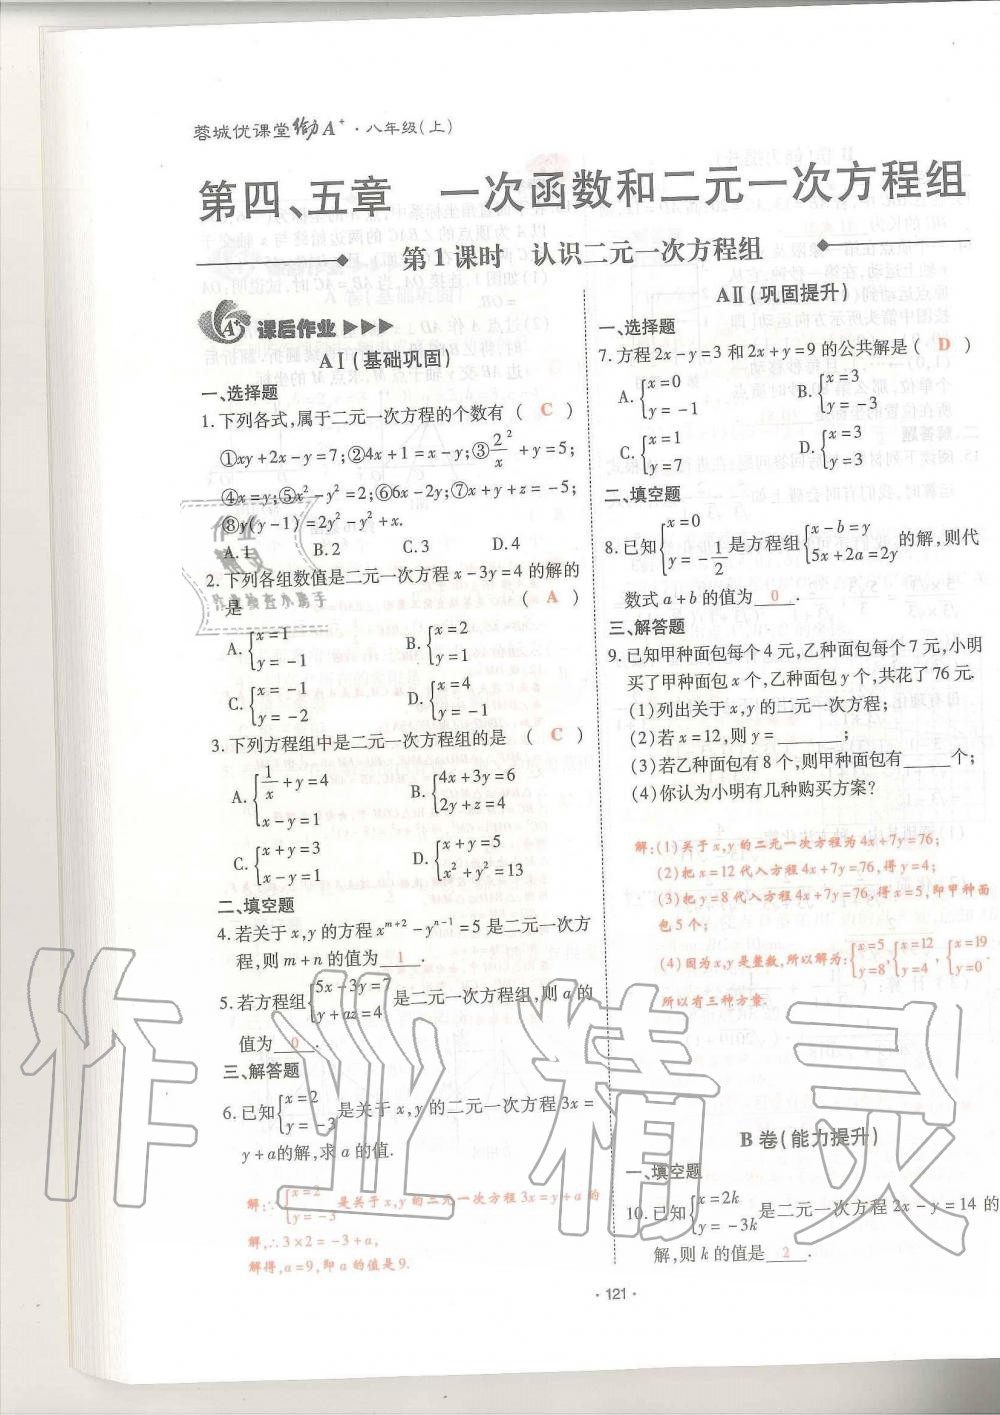 蓉城优课堂给力A⁺·八年级(上)
第四、五章 一次函数和二元一次方程组
第1课时 认识二元一次方程组
A⁺ 课后作业
AⅠ(基础巩固)
一、选择题
1. 下列各式,属于二元一次方程的个数有 ( C )
①xy+2x-y=7;②4x+1=x-y;③2/x²+y=5;
④x=y;⑤x²-y²=2;⑥6x-2y;⑦x+y+z=-5;
⑧y(y-1)=2y²-y²+x.
A.1 B.2 C.3 D.4
2. 下列各组数值是二元一次方程x-3y=4的解的
是 ( A )
A.{x=1 y=-1 B.{x=2 y=1
C.{x=-1 y=-2 D.{x=4 y=-1
3. 下列方程组中是二元一次方程组的是 ( C )
A.{1/x+y=4 x-y=1 B.{4x+3y=6 2y+z=4
C.{x+y=3 x-y=1 D.{x+y=5 x²+y²=13
二、填空题
4. 若关于x,y的方程x^(m+2)-y^(n-1)=5是二元一次方
程,则m+n的值为 1 .
5. 若方程组{5x-3y=7 y+az=4 是二元一次方程组,则a的
值为 0 .
三、解答题
6. 已知{x=2 y=-3 是关于x,y的二元一次方程3x=
y+a的解,求a的值.
解:∵{x=2 y=-3 是关于x,y的二元一次方程3x=y+a的
解,∴3×2=-3+a,
解得,a=9,即a的值是9.
AⅡ(巩固提升)
一、选择题
7. 方程2x-y=3和2x+y=9的公共解是 ( D )
A.{x=0 y=-1 B.{x=3 y=-3
C.{x=1 y=7 D.{x=3 y=3
二、填空题
8. 已知{x=0 y=-1/2 是方程组{x-b=y 5x+2a=2y 的解,则代
数式a+b的值为 0 .
三、解答题
9. 已知甲种面包每个4元,乙种面包每个7元,小明
买了甲种面包x个,乙种面包y个,共花了76元.
(1)列出关于x,y的二元一次方程;
(2)若x=12,则y=______;
(3)若乙种面包有8个,则甲种面包有______个;
(4)你认为小明有几种购买方案?
解:(1)关于x,y的二元一次方程为4x+7y=76;
(2)把x=12代入方程4x+7y=76,得y=4;
(3)把y=8代入方程4x+7y=76,得x=5,即甲种面
包5个;
(4)因为x,y是整数,所以解为:{x=5 y=8,{x=12 y=4,{x=19 y=0.
所以有三种方案.
B卷(能力提升)
一、填空题
10. 已知{x=2k y=-3k 是二元一次方程2x-y=14的
解,则k的值是 2 .
·121·
作业精灵
作业检查小助手
作业精灵